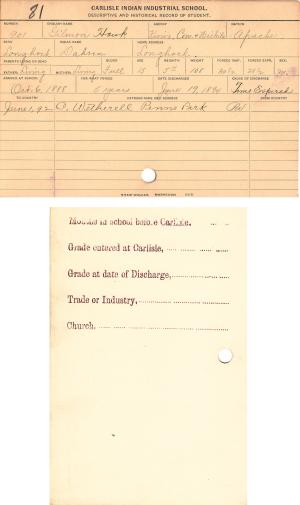 81
CARLISLE INDIAN INDUSTRIAL SCHOOL.
DESCRIPTIVE AND HISTORICAL RECORD OF STUDENT.
NUMBER ENGLISH NAME AGENCY NATION
901 Hawk Apache
BAND INDIAN NAME HOME ADDRESS
PARENTS LIVING OR DEAD BLOOD AGE HEIGHT WEIGHT FORCED INSP. FORCED EXPR. SEX.
FATHER, Living MOTHER, Living Full 15 108 M.
ARRIVED AT SCHOOL FOR WHAT PERIOD DATE DISCHARGED CAUSE OF DISCHARGE
Oct. 6, 1888 5 years June 19, 1894 Time Expired
TO COUNTRY PATRONS NAME AND ADDRESS FROM COUNTRY
June 1, 92 C. Wetherell Penns Park Ret
Months in school before Carlisle,
Grade entered at Carlisle,
Grade at date of Discharge,
Trade or Industry,
Church.